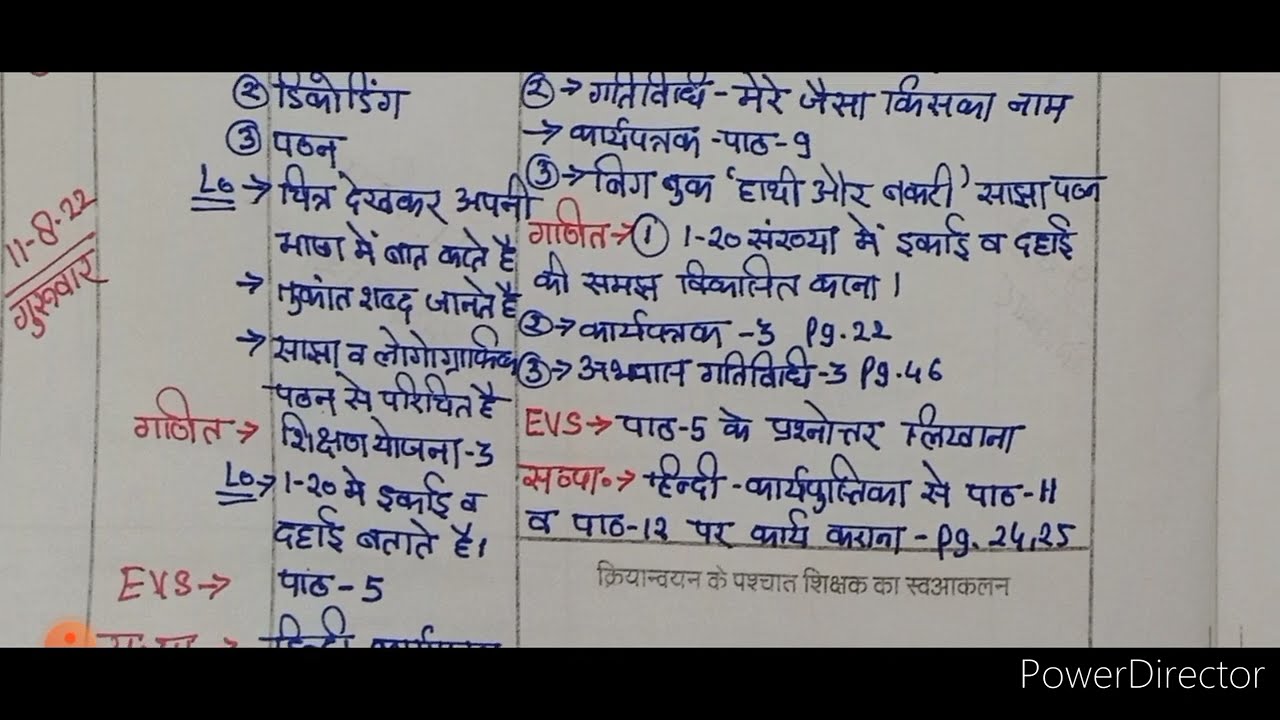 11-8-22
गुरूवार
② डिकोडिंग
③ पठन
LO → चित्र देखकर अपनी
भाषा में बात करते है
→ तुकांत शब्द जानते है
→ साझा व लोगोग्राफिक
पठन से परिचित है
गणित → शिक्षण योजना-3
LO → 1-20 मे इकाई व
दहाई बताते है।
EVS → पाठ - 5
② → गतिविधि - मेरे जैसा किसका नाम
→ कार्यपत्रक - पाठ - 9
③ → बिग बुक 'हाथी और बकरी' साझा पठन
गणित → ① 1-20 संख्या में इकाई व दहाई
की समझ विकसित करना।
② → कार्यपत्रक - 3 Pg. 22
③ → अभ्यास गतिविधि - 3 Pg. 46
EVS → पाठ-5 के प्रश्नोत्तर लिखाना
→ हिन्दी - कार्यपुस्तिका से पाठ - 11
व पाठ-12 पर कार्य कराना - Pg. 24,25
क्रियान्वयन के पश्चात शिक्षक का स्वआकलन
PowerDirector